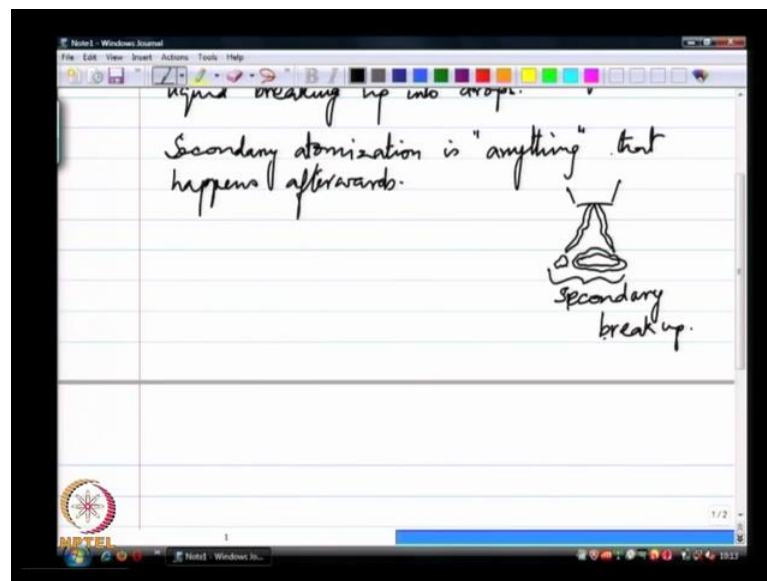 Note1 - Windows Journal
File Edit View Insert Actions Tools Help
liquid breaking up into drops.
Secondary atomization is "anything" that
happens afterwards.
Secondary
break up.
1/2
1
NPTEL
Note1 - Windows Jo...
10:13